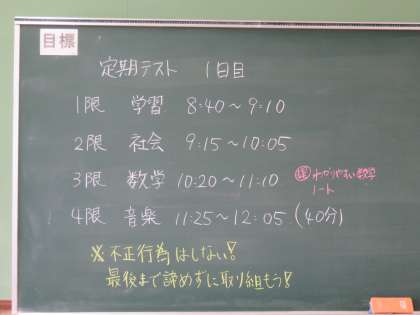 目標
定期テスト 1日目
1限 学習 8:40～9:10
2限 社会 9:15～10:05
3限 数学 10:20～11:10
わかりやすい数学
ノート
4限 音楽 11:25～12:05 (40分)
※不正行為はしない!
最後まで諦めずに取り組もう!